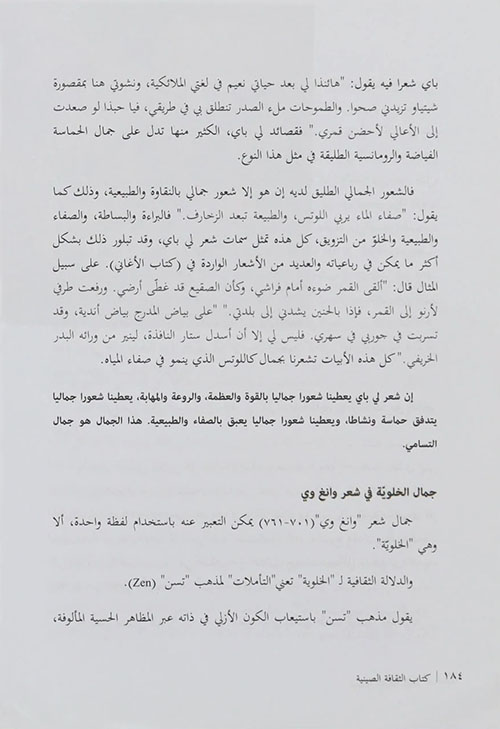 باي شعرا فيه يقول: "هائنذا لي بعد حياتي نعيم في لغتي الملائكية، ونشوتي هنا بمقصورة
شيتياو تزيدني صحوا. والطموحات ملء الصدر تنطلق بي في طريقي، فيا حبذا لو صعدت
إلى الأعالي لأحضن قمري." فقصائد لي باي، الكثير منها تدل على جمال الحماسة
الفياضة والرومانسية الطليقة في مثل هذا النوع.
فالشعور الجمالي الطليق لديه إن هو إلا شعور جمالي بالنقاوة والطبيعية، وذلك كما
يقول: "صفاء الماء يربي اللوتس، والطبيعة تبعد الزخارف." فالبراءة والبساطة، والصفاء
والطبيعية والخلوّ من التزويق، كل هذه تمثل سمات شعر لي باي، وقد تبلور ذلك بشكل
أكثر ما يمكن في رباعياته والعديد من الأشعار الواردة في (كتاب الأغاني). على سبيل
المثال قال: "ألقى القمر ضوءه أمام فراشي، وكأن الصقيع قد غطّى أرضي. ورفعت طرفي
لأرنو إلى القمر، فإذا بالحنين يشدني إلى بلدتي." "على بياض المدرج بياض أندية، وقد
تسربت في جوربي في سهري. فليس لي إلا أن أسدل ستار النافذة، لينير من ورائه البدر
الخريفي." كل هذه الأبيات تشعرنا بجمال كاللوتس الذي ينمو في صفاء المياه.
إن شعر لي باي يعطينا شعورا جماليا بالقوة والعظمة، والروعة والمهابة، يعطينا شعورا جماليا
يتدفق حماسة ونشاطا، ويعطينا شعورا جماليا يعبق بالصفاء والطبيعية. هذا الجمال هو جمال
التسامي.
جمال الخلويّة في شعر وانغ وي
جمال شعر "وانغ وي"(٧٠١-٧٦١) يمكن التعبير عنه باستخدام لفظة واحدة، ألا
وهي "الخلويّة".
والدلالة الثقافية لـ "الخلوية" تعني"التأملات" لمذهب "تسن" (Zen).
يقول مذهب "تسن" باستيعاب الكون الأزلي في ذاته عبر المظاهر الحسية المألوفة،
١٨٤ | كتاب الثقافة الصينية